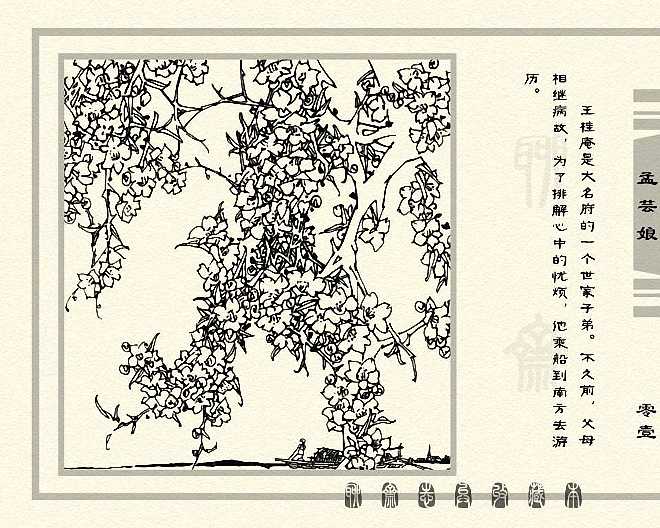 孟芸娘
零壹
王桂庵是大名府的一个世家子弟。不久前，父母
相继病故，为了排解心中的忧烦，他乘船到南方去游
历。